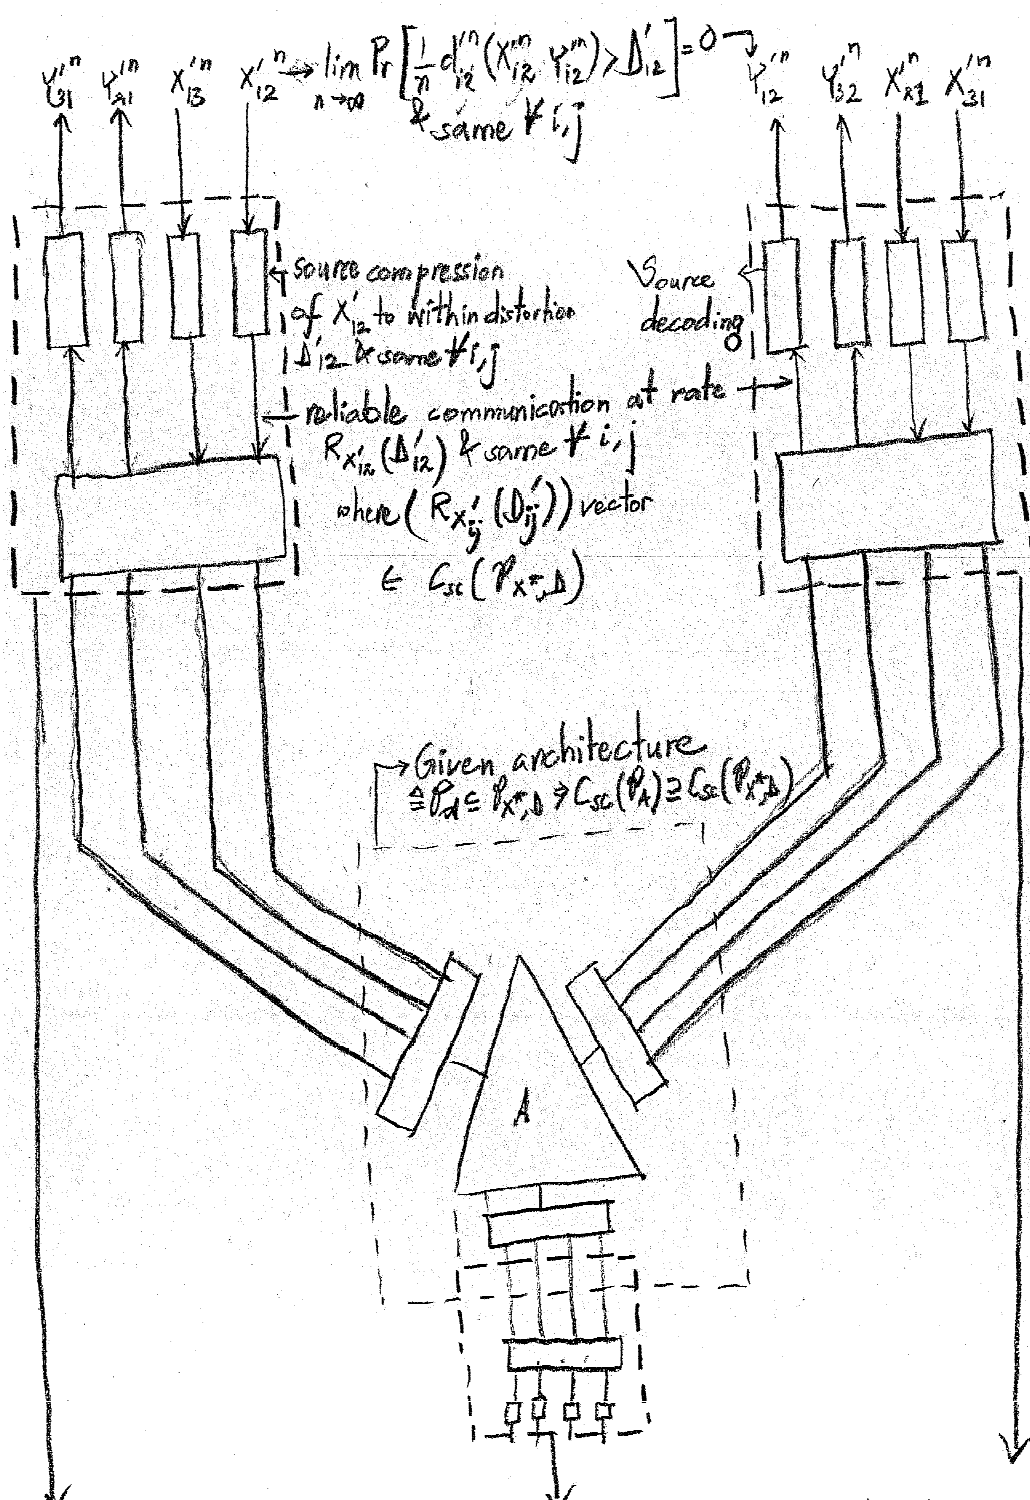 Y'ⁿ₃₁ Y'ⁿ₂₁ X'ⁿ₁₃ X'ⁿ₁₂ → lim n→∞ Pr[1/n d'ⁿ₁₂(X'ⁿ₁₂, Y'ⁿ₁₂) > D'₁₂] = 0 → Y'ⁿ₁₂ Y'ⁿ₃₂ X'ⁿ₂₁ X'ⁿ₃₁
& same ∀ i,j
source compression
of X'₁₂ to within distortion
D'₁₂ & same ∀ i,j
Source
decoding
reliable communication at rate
R_X'₁₂(D'₁₂) & same ∀ i,j
where (R_X'ᵢⱼ(D'ᵢⱼ)) vector
∈ C_sc(P_X*,D)
Given architecture
≜ P_A ⊆ P_X*,D ⇒ C_sc(P_A) ⊇ C_sc(P_X*,D)
A